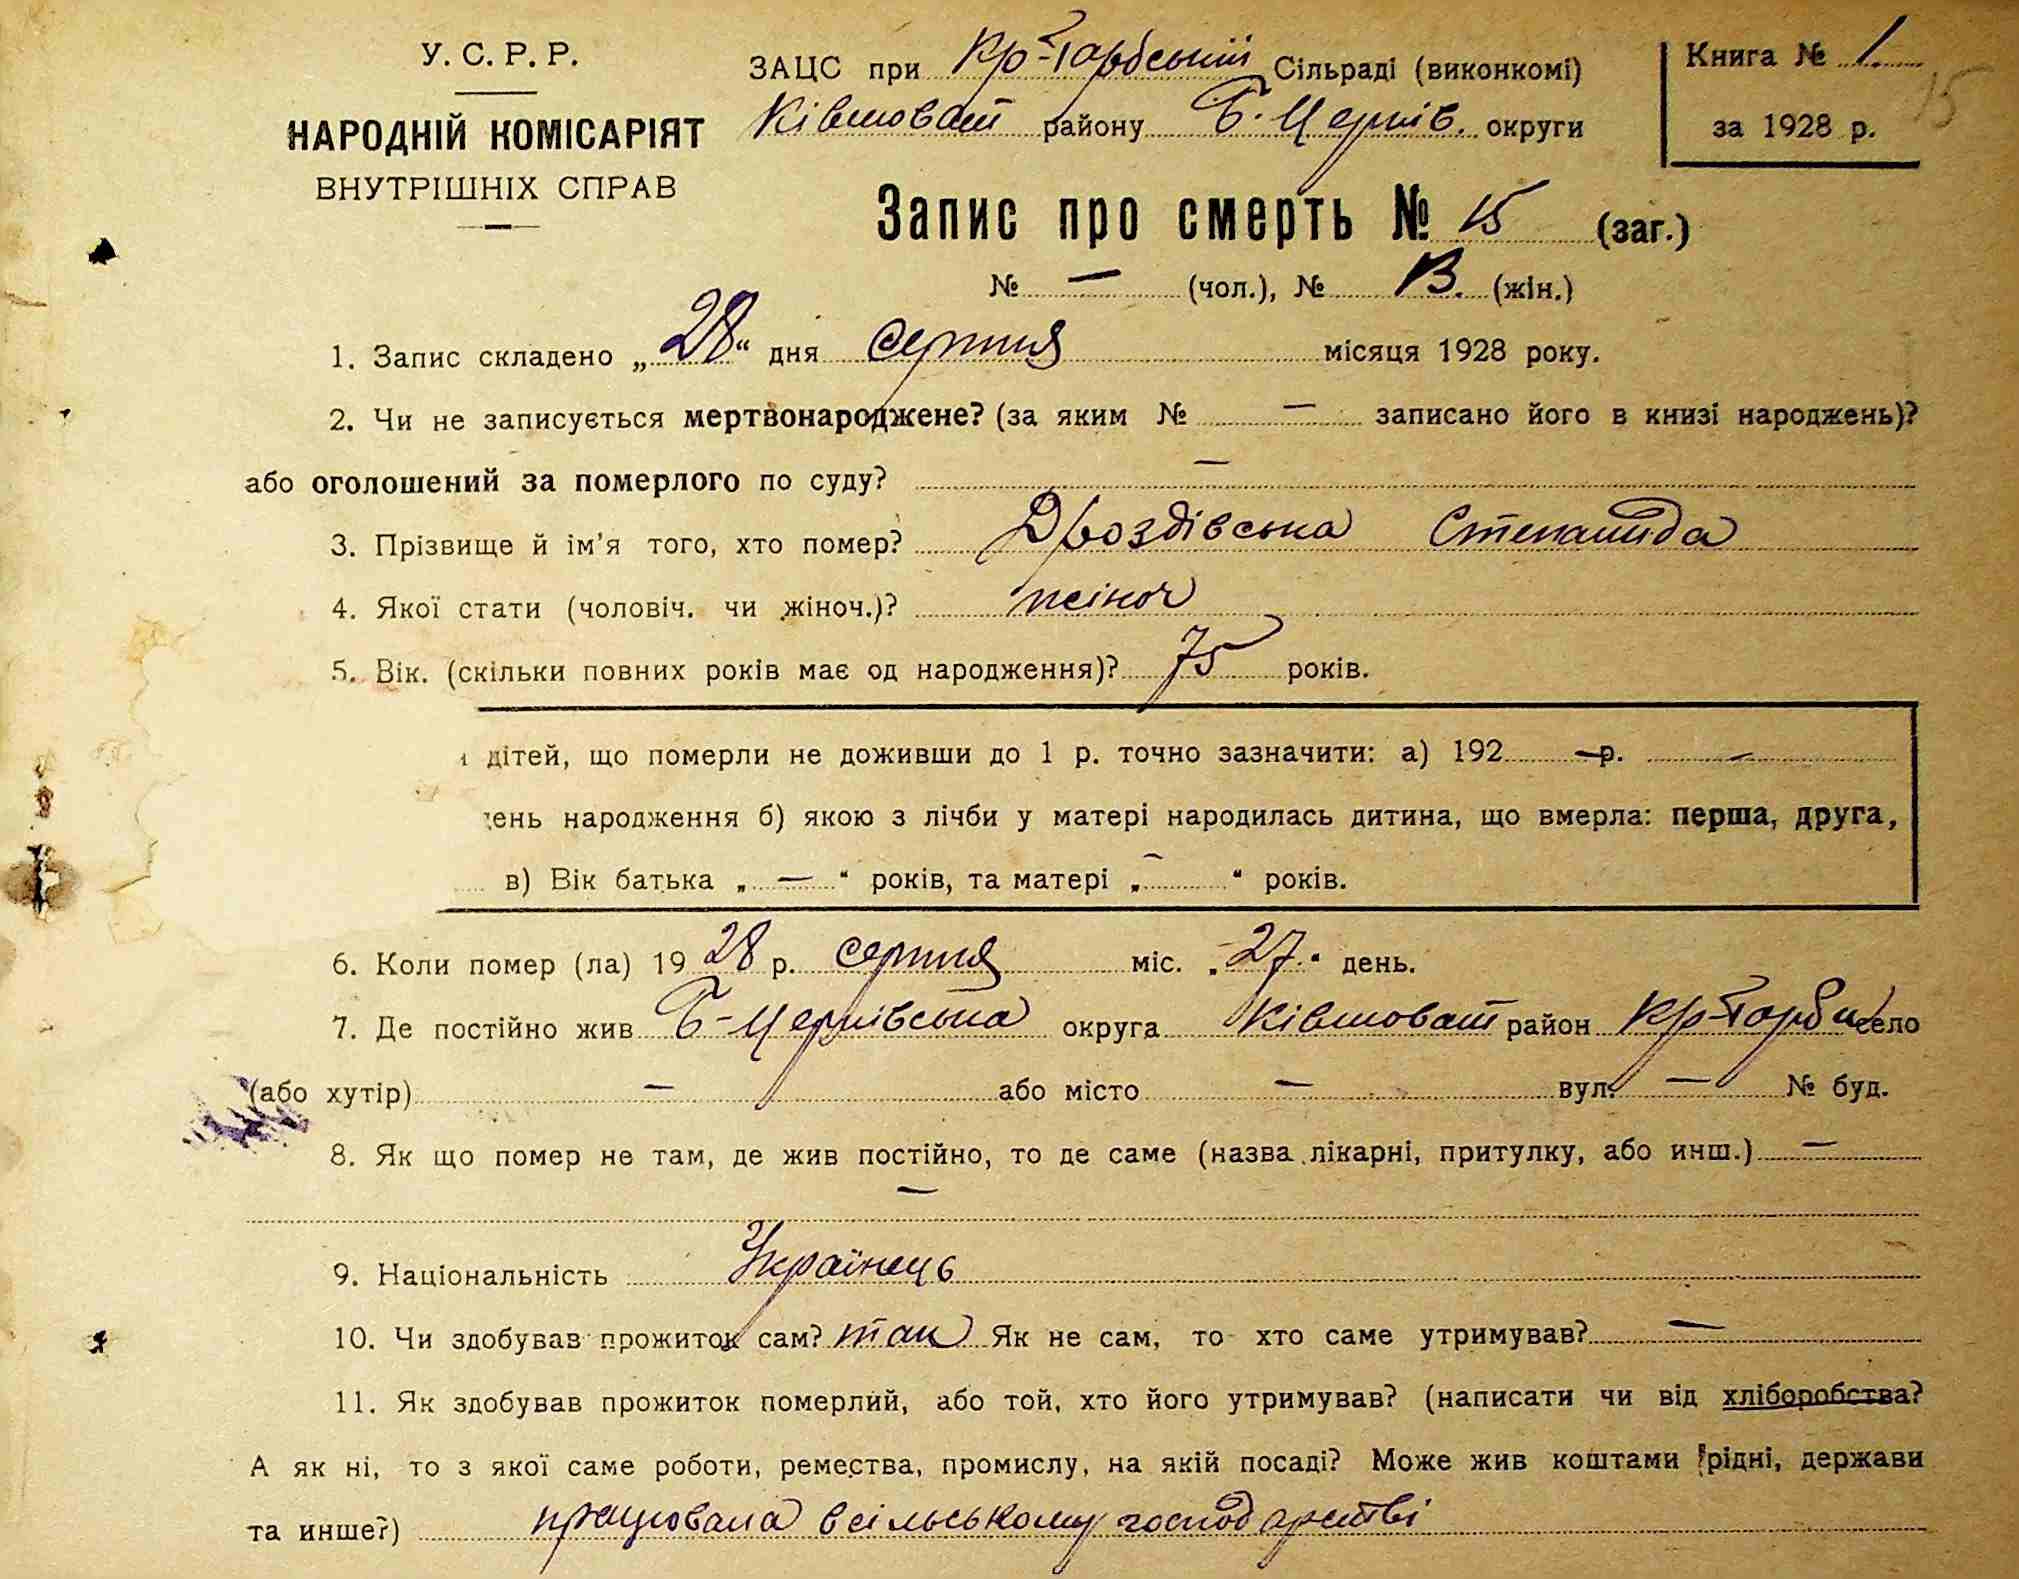 У. С. Р. Р.
НАРОДНІЙ КОМІСАРІЯТ
ВНУТРІШНІХ СПРАВ
ЗАЦС при Кр-Тарбській Сільраді (виконкомі)
Ківшоват району Б. Церків. округи
Книга № 1.
за 1928 р.
15
Запис про смерть № 15 (заг.)
№ — (чол.), № (жін.)
1. Запис складено „28“ дня серпня місяця 1928 року.
2. Чи не записується мертвонароджене? (за яким № — записано його в книзі народжень)?
або оголошений за померлого по суду? —
3. Прізвище й ім'я того, хто помер? Дроздівська Степанида
4. Якої стати (чоловіч. чи жіноч.)? жіноч
5. Вік. (скільки повних років має од народження)? 75 років.
дітей, що померли не доживши до 1 р. точно зазначити: а) 192 — р. —
ень народження б) якою з лічби у матері народилась дитина, що вмерла: перша, друга,
в) Вік батька „ — “ років, та матері „ — “ років.
6. Коли помер (ла) 19 28 р. серпня міс. „27“ день.
7. Де постійно жив Б-Церківська округа Ківшоват район Кр-Тарби село
(або хутір) — або місто — вул. — № буд.
8. Як що помер не там, де жив постійно, то де саме (назва лікарні, притулку, або инш.) —
—
9. Національність Українець
10. Чи здобував прожиток сам? так Як не сам, то хто саме утримував? —
11. Як здобував прожиток померлий, або той, хто його утримував? (написати чи від хліборобства?
А як ні, то з якої саме роботи, ремества, промислу, на якій посаді? Може жив коштами рідні, держави
та инше?) працювала в сільському господарстві